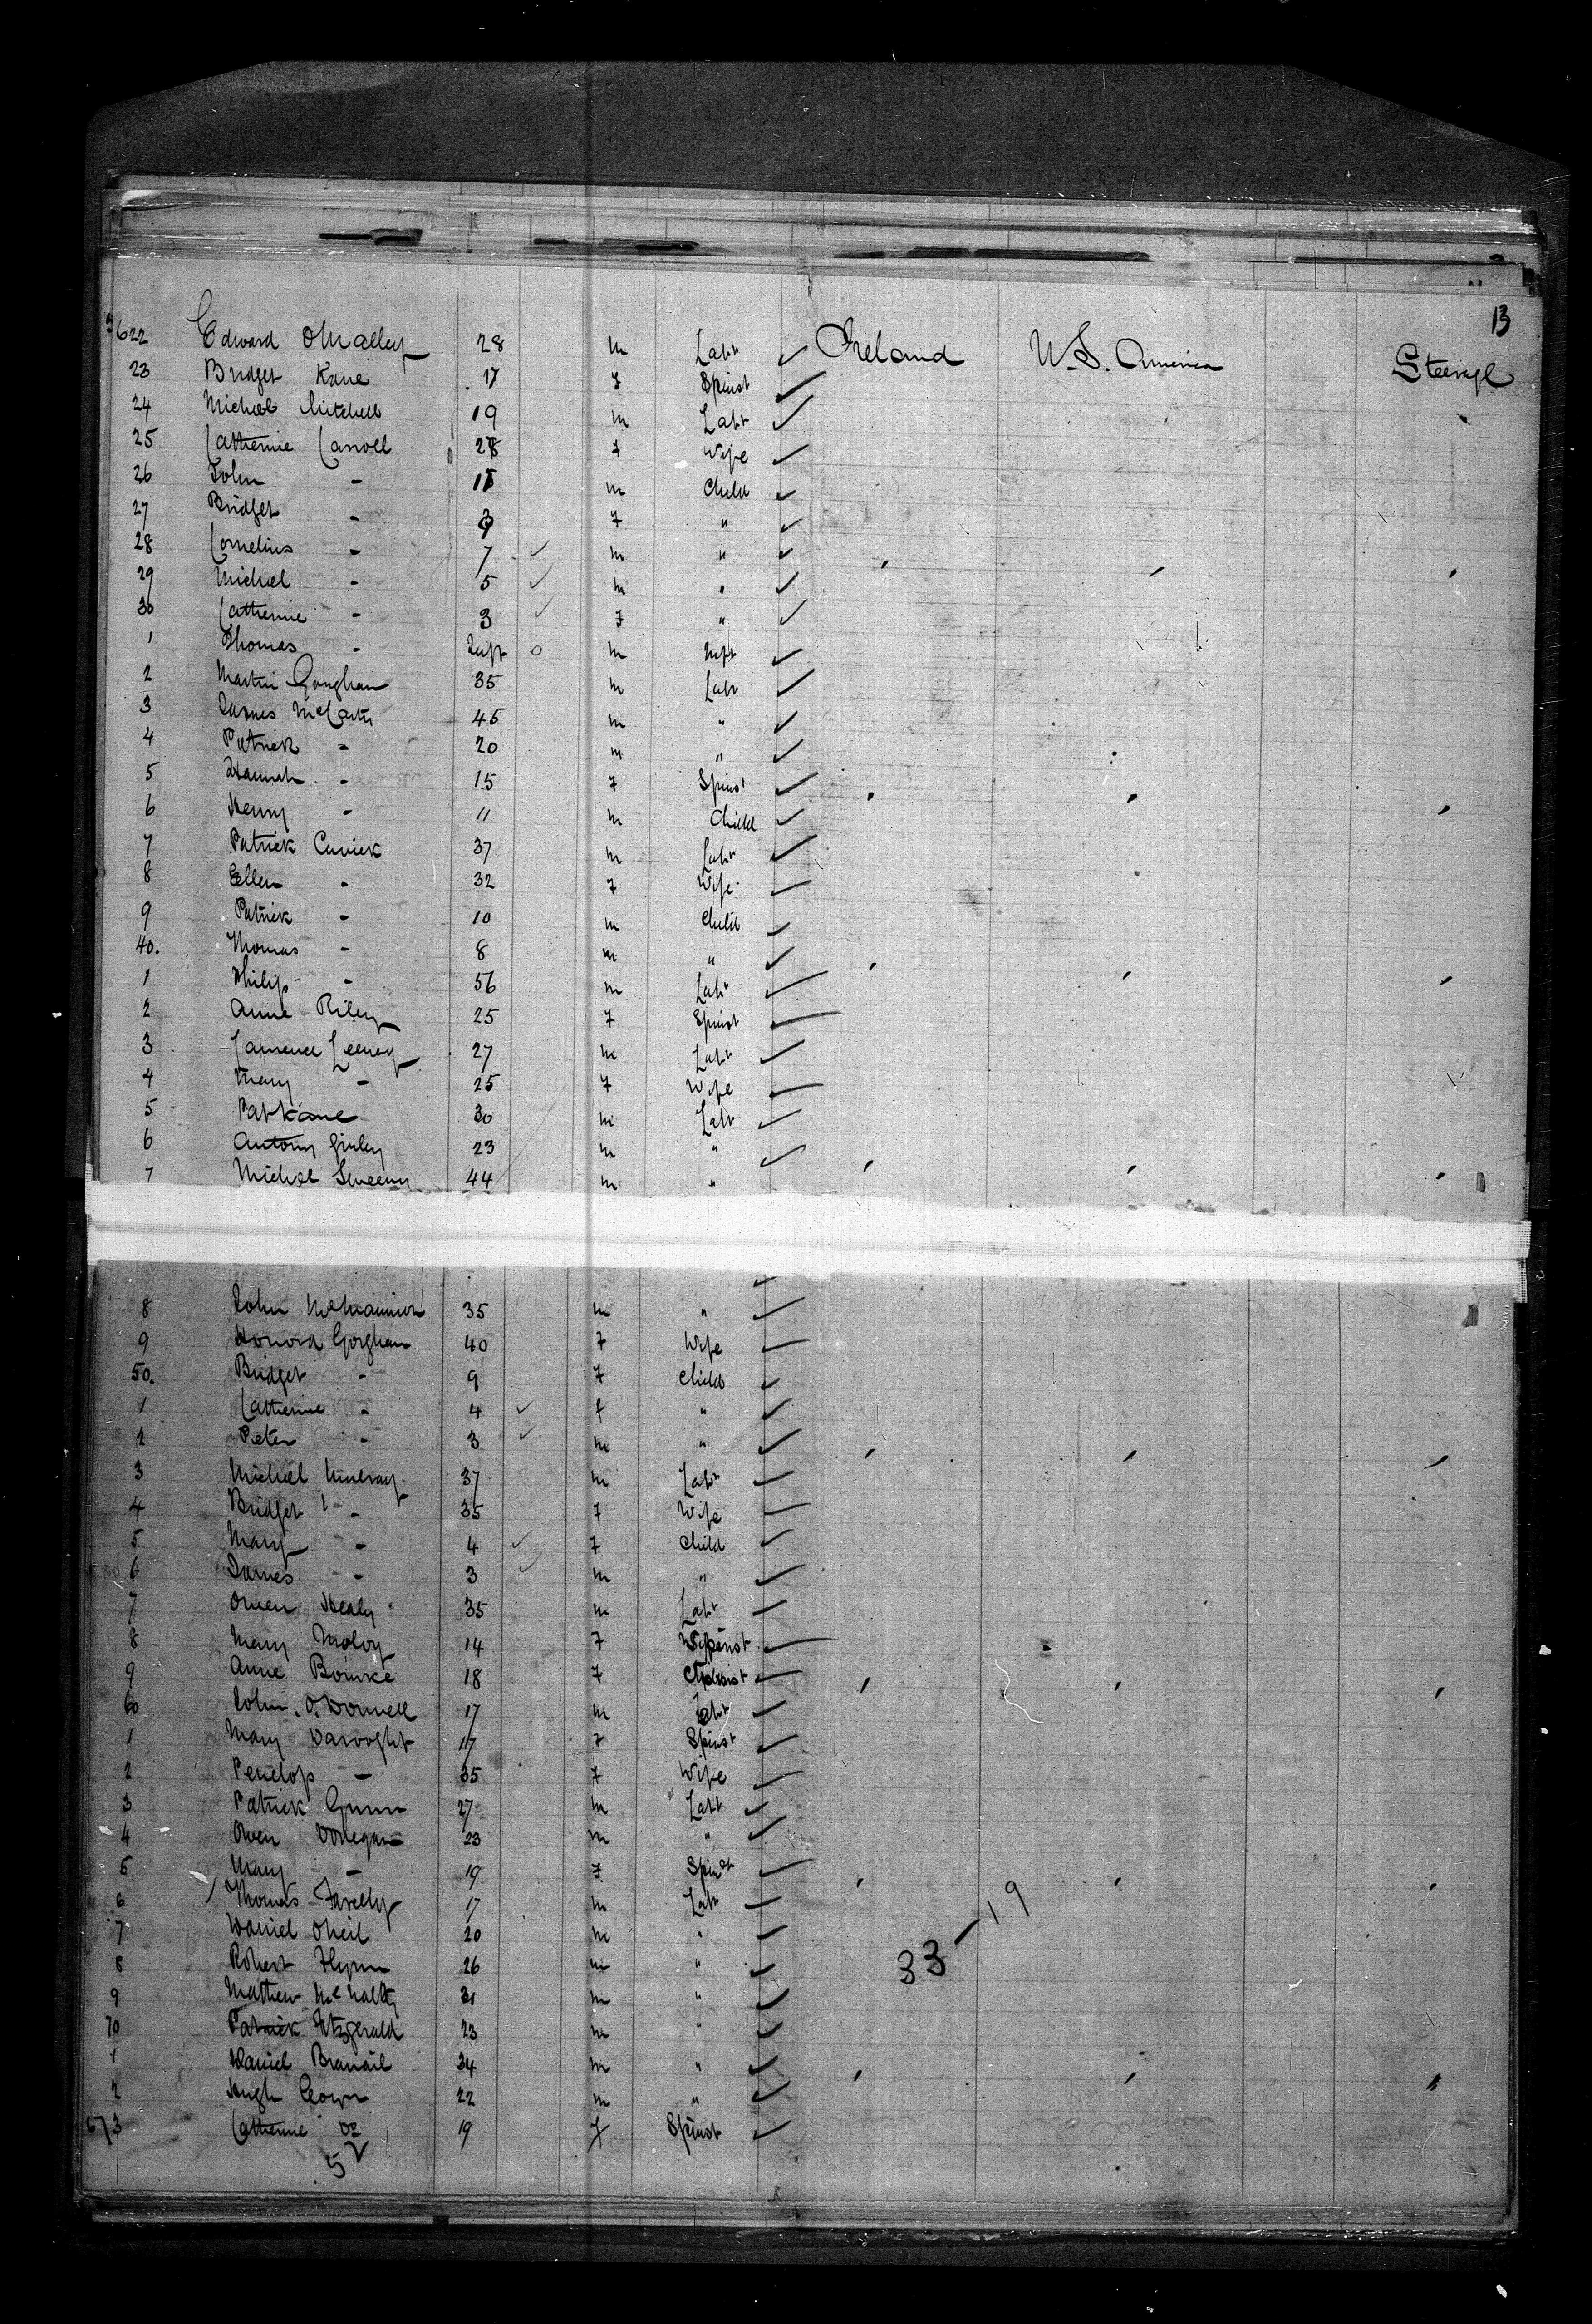 13
622 Edward OMalley 28 m Labr ✓ Ireland U.S. America Steerage
23 Bridget Kane 17 f Spinst ✓
24 Michael Mitchell 19 m Labr ✓
25 Catherine Carroll 28 f Wife ✓
26 John - m Child ✓
27 Bridget - f " ✓
28 Cornelius - 7 ✓ m " ✓
29 Michael - 5 ✓ m " ✓
30 Catherine - 3 ✓ f " ✓
1 Thomas - Inft o m Inft ✓
2 Martin Goughan 35 m Labr ✓
3 James McCarty 45 m " ✓
4 Patrick - 20 m " ✓
5 Hannah - 15 f Spinst ✓
6 Henry - 11 m Child ✓
7 Patrick Cusick 37 m Labr ✓
8 Ellen - 32 f Wife ✓
9 Patrick - 10 m Child ✓
40. Thomas - 8 m " ✓
1 Philip - 56 m Labr ✓
2 Anne Riley 25 f Spinst ✓
3 Laurence Leeney 27 m Labr ✓
4 Mary - 25 f Wife ✓
5 Pat Kane 30 m Labr ✓
6 Antony Ginley 23 m " ✓
7 Michael Sweeny 44 m " ✓
8 John 35 m " ✓
9 Honora Gorghan 40 f Wife ✓
50. Bridget - 9 f Child ✓
1 Catherine - 4 ✓ f " ✓
2 Peter - 3 ✓ m " ✓
3 Michael Mulray 37 m Labr ✓
4 Bridget - 35 f Wife ✓
5 Mary - 4 ✓ f Child ✓
6 James - 3 ✓ m " ✓
7 Owen Healy 35 m Labr ✓
8 Mary Moloy 14 f Spinst ✓
9 Anne Bourke 18 f Spinst ✓
60 John O.Donnell 17 m Labr ✓
1 Mary 17 f Spinst ✓
2 Penelop - 35 f Wife ✓
3 Patrick Gunn 27 m Labr ✓
4 Owen Donegan 23 m " ✓
5 Mary - 19 f Spinst ✓
6 Thomas Farelly 17 m Labr ✓
7 Daniel ONeil 20 m " ✓
8 Robert Flynn 26 m " ✓
33 - 19
9 Mathew McNalty 21 m " ✓
70 Patrick Fitzgerald 23 m " ✓
1 Daniel 34 m " ✓
2 Hugh 22 m " ✓
673 Catherine Do 19 f Spinst ✓
52